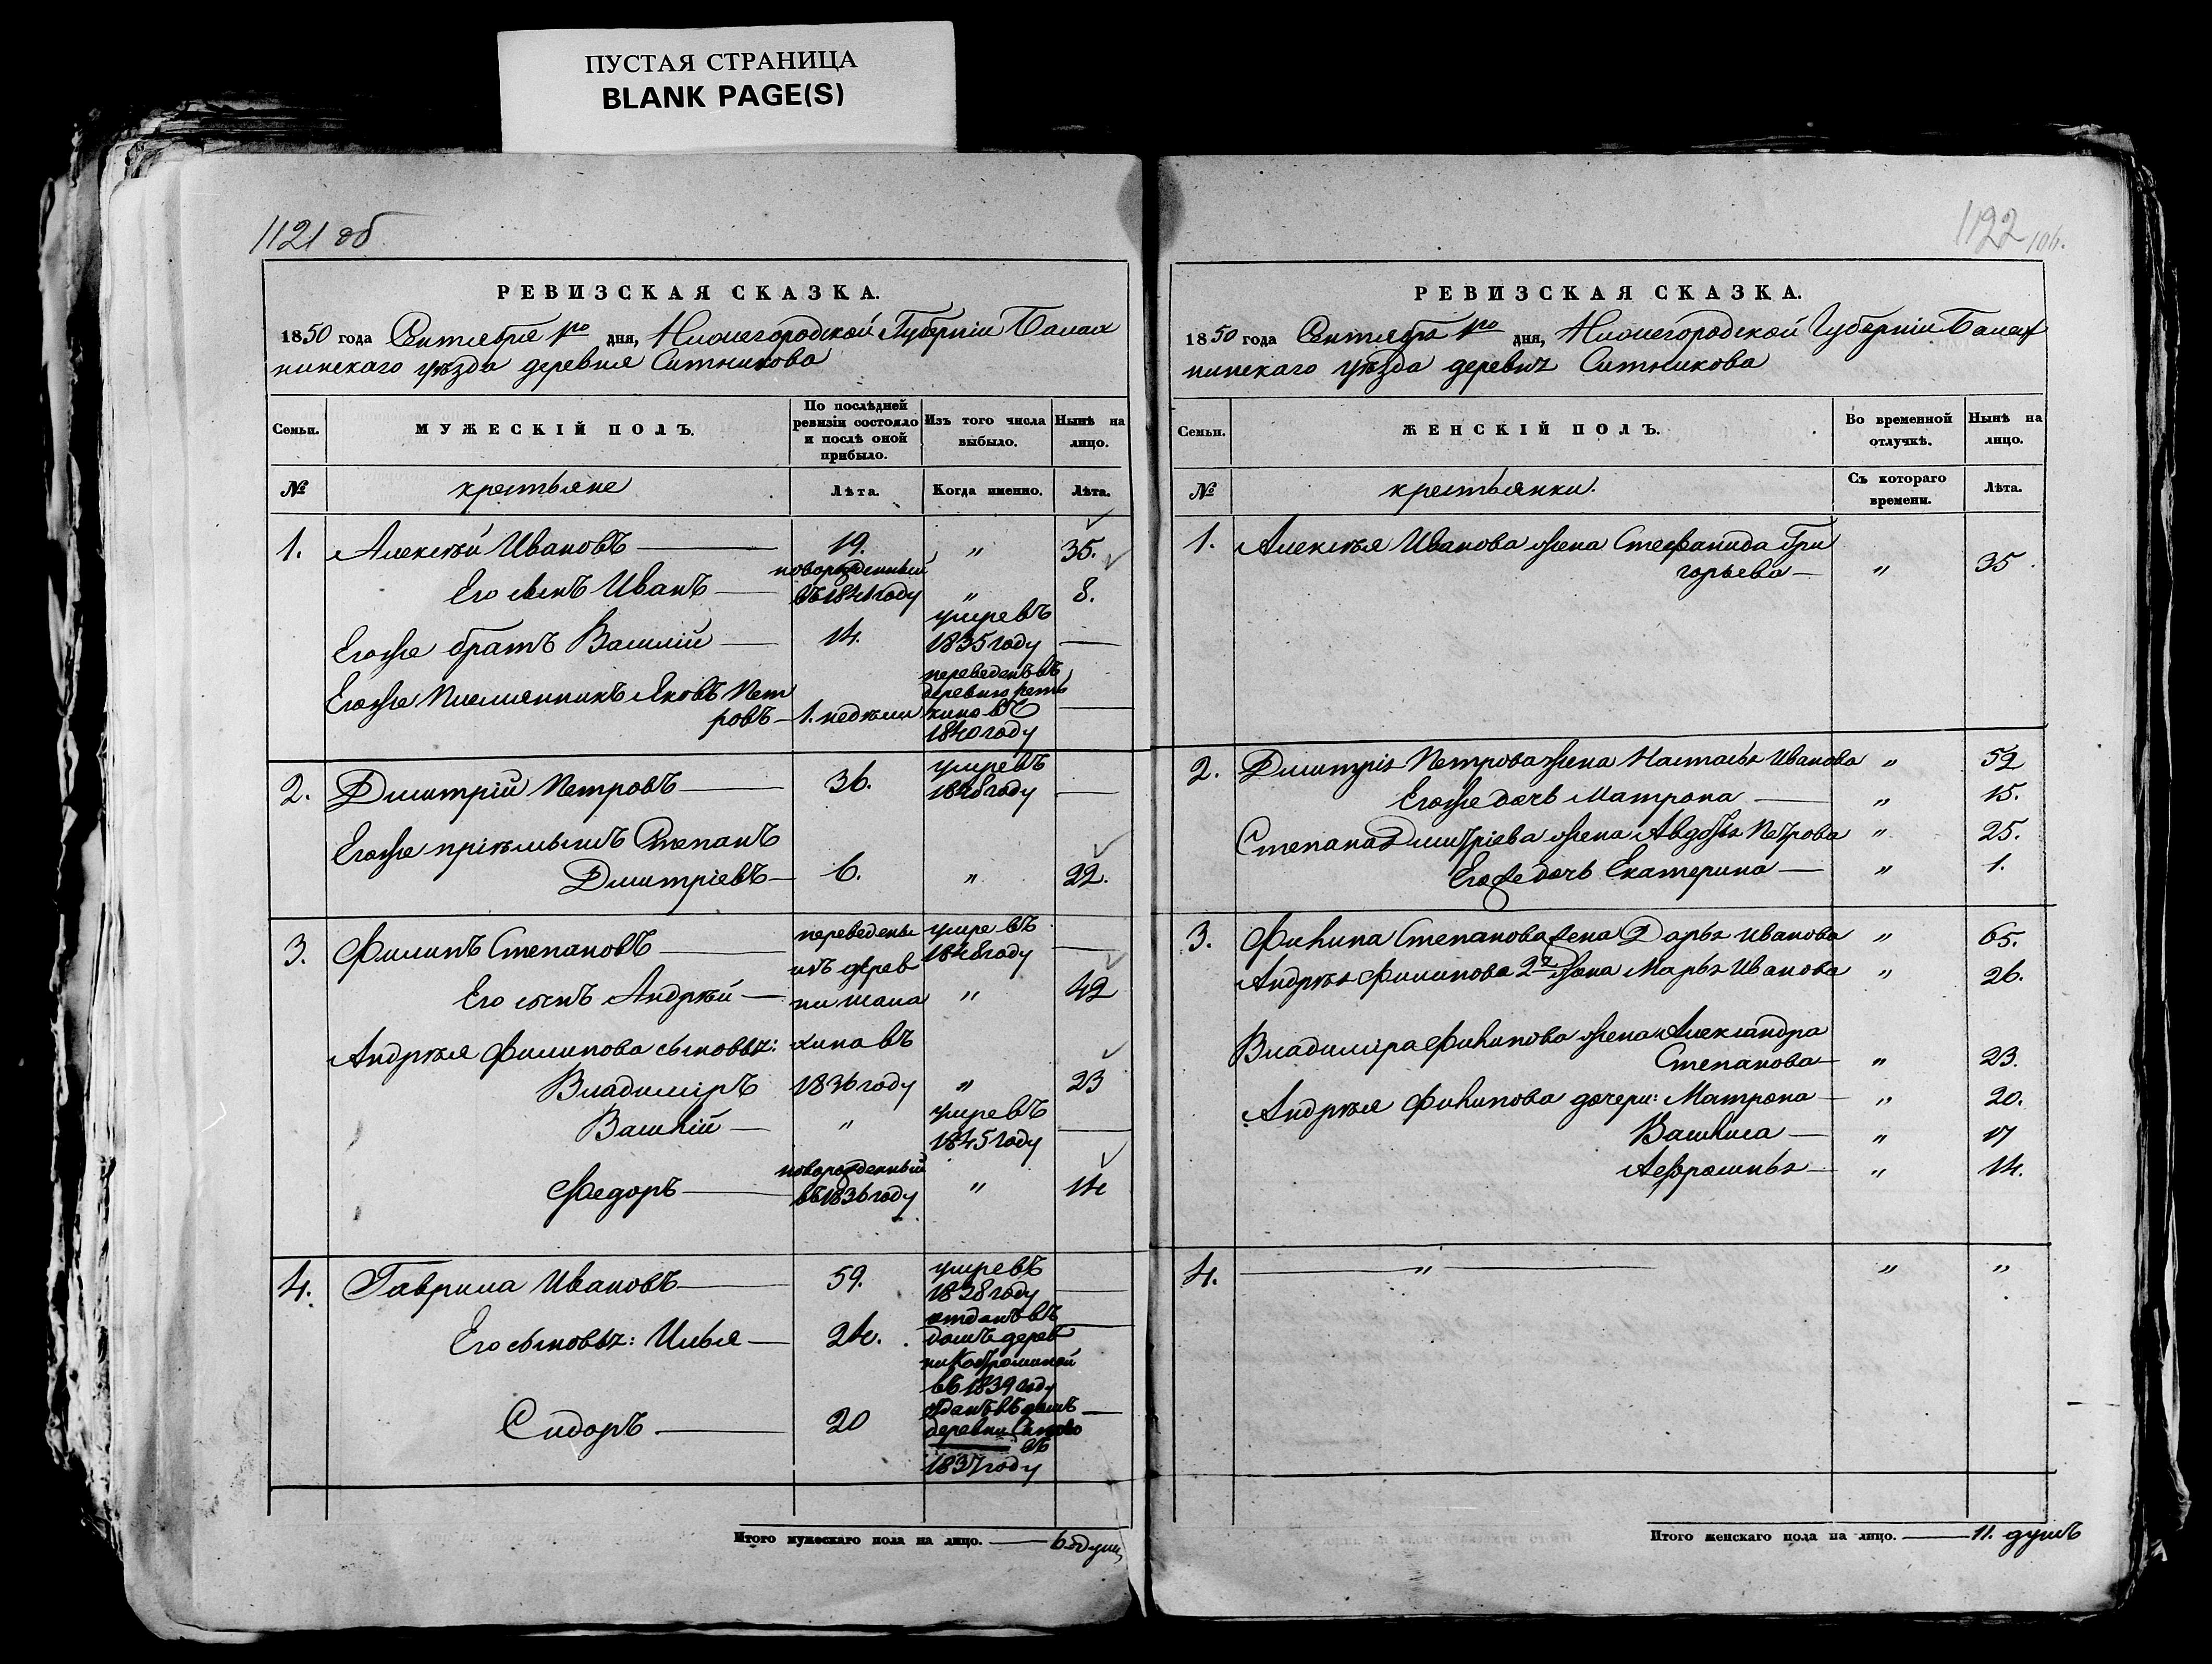 ПУСТАЯ СТРАНИЦА
BLANK PAGE(S)
1121 об
РЕВИЗСКАЯ СКАЗКА.
1850 года Сентября 1го дня, Нижегородской Губернiи Балах
нинскаго уѣзда деревня Ситникова
Семьи.
МУЖЕСКIЙ ПОЛЪ.
По послѣдней ревизiи состояло и послѣ оной прибыло.
Изъ того числа выбыло.
Нынѣ на лицо.
№
крестьяне
Лѣта.
Когда именно.
Лѣта.
1. Алексѣй Ивановъ — 19. " 35.
Его сынъ Иванъ — новорожденный въ 1841 году " 8.
Егоже братъ Василiй — 14. умре въ 1835 году —
Егоже Племянникъ Яковъ Пет
ровъ — 1. недѣли переведенъ въ деревню кино въ 1840 году —
2. Дмитрiй Петровъ — 36. умре въ 1848 году —
Егоже прiемышъ Степанъ
Дмитрiевъ — 6. " 22.
3. Филипъ Степановъ — переведены умре въ 1848 году —
Его сынъ Андрѣй — изъ дерев ни " 42
Андрѣя Филипова сыновья: кина въ
Владимiръ 1836 году " 23
Василiй — " умре въ 1845 году —
Федоръ — новорожденный въ 1836 году " 14
4. Гаврила Ивановъ — 59. умре въ 1838 году —
Его сыновья: Илья — 24. отданъ въ домъ дерев ни Костроминой въ 1839 году —
Сидоръ — 20 отданъ въ домъ деревни въ 1837 году —
Итого мужескаго пола на лицо. — 6 душ
1122 106.
РЕВИЗСКАЯ СКАЗКА.
1850 года Сентября 1го дня, Нижегородской Губернiи Балах
нинскаго уѣзда деревня Ситникова
Семьи.
ЖЕНСКIЙ ПОЛЪ.
Во временной отлучкѣ.
Нынѣ на лицо.
№
крестьянки.
Съ котораго времени.
Лѣта.
1. Алексѣя Иванова жена Стефанида Гри
горьева — " 35.
2. Дмитрiя Петрова жена Настасья Иванова " 52
Егоже дочь Матрона — " 15.
Степана Дмитрiева жена Авдотья Петрова " 25.
Егоже дочь Екатерина — " 1.
3. Филипа Степанова жена Дарья Иванова " 65.
Андрѣя Филипова 2я жена Марья Иванова " 26.
Владимiра Филипова жена Александра
Степанова — " 23.
Андрѣя Филипова дочери: Матрона — " 20.
Василиса — " 17
Афросинья — " 14.
4. — " — " "
Итого женскаго пола на лицо. — 11. душъ